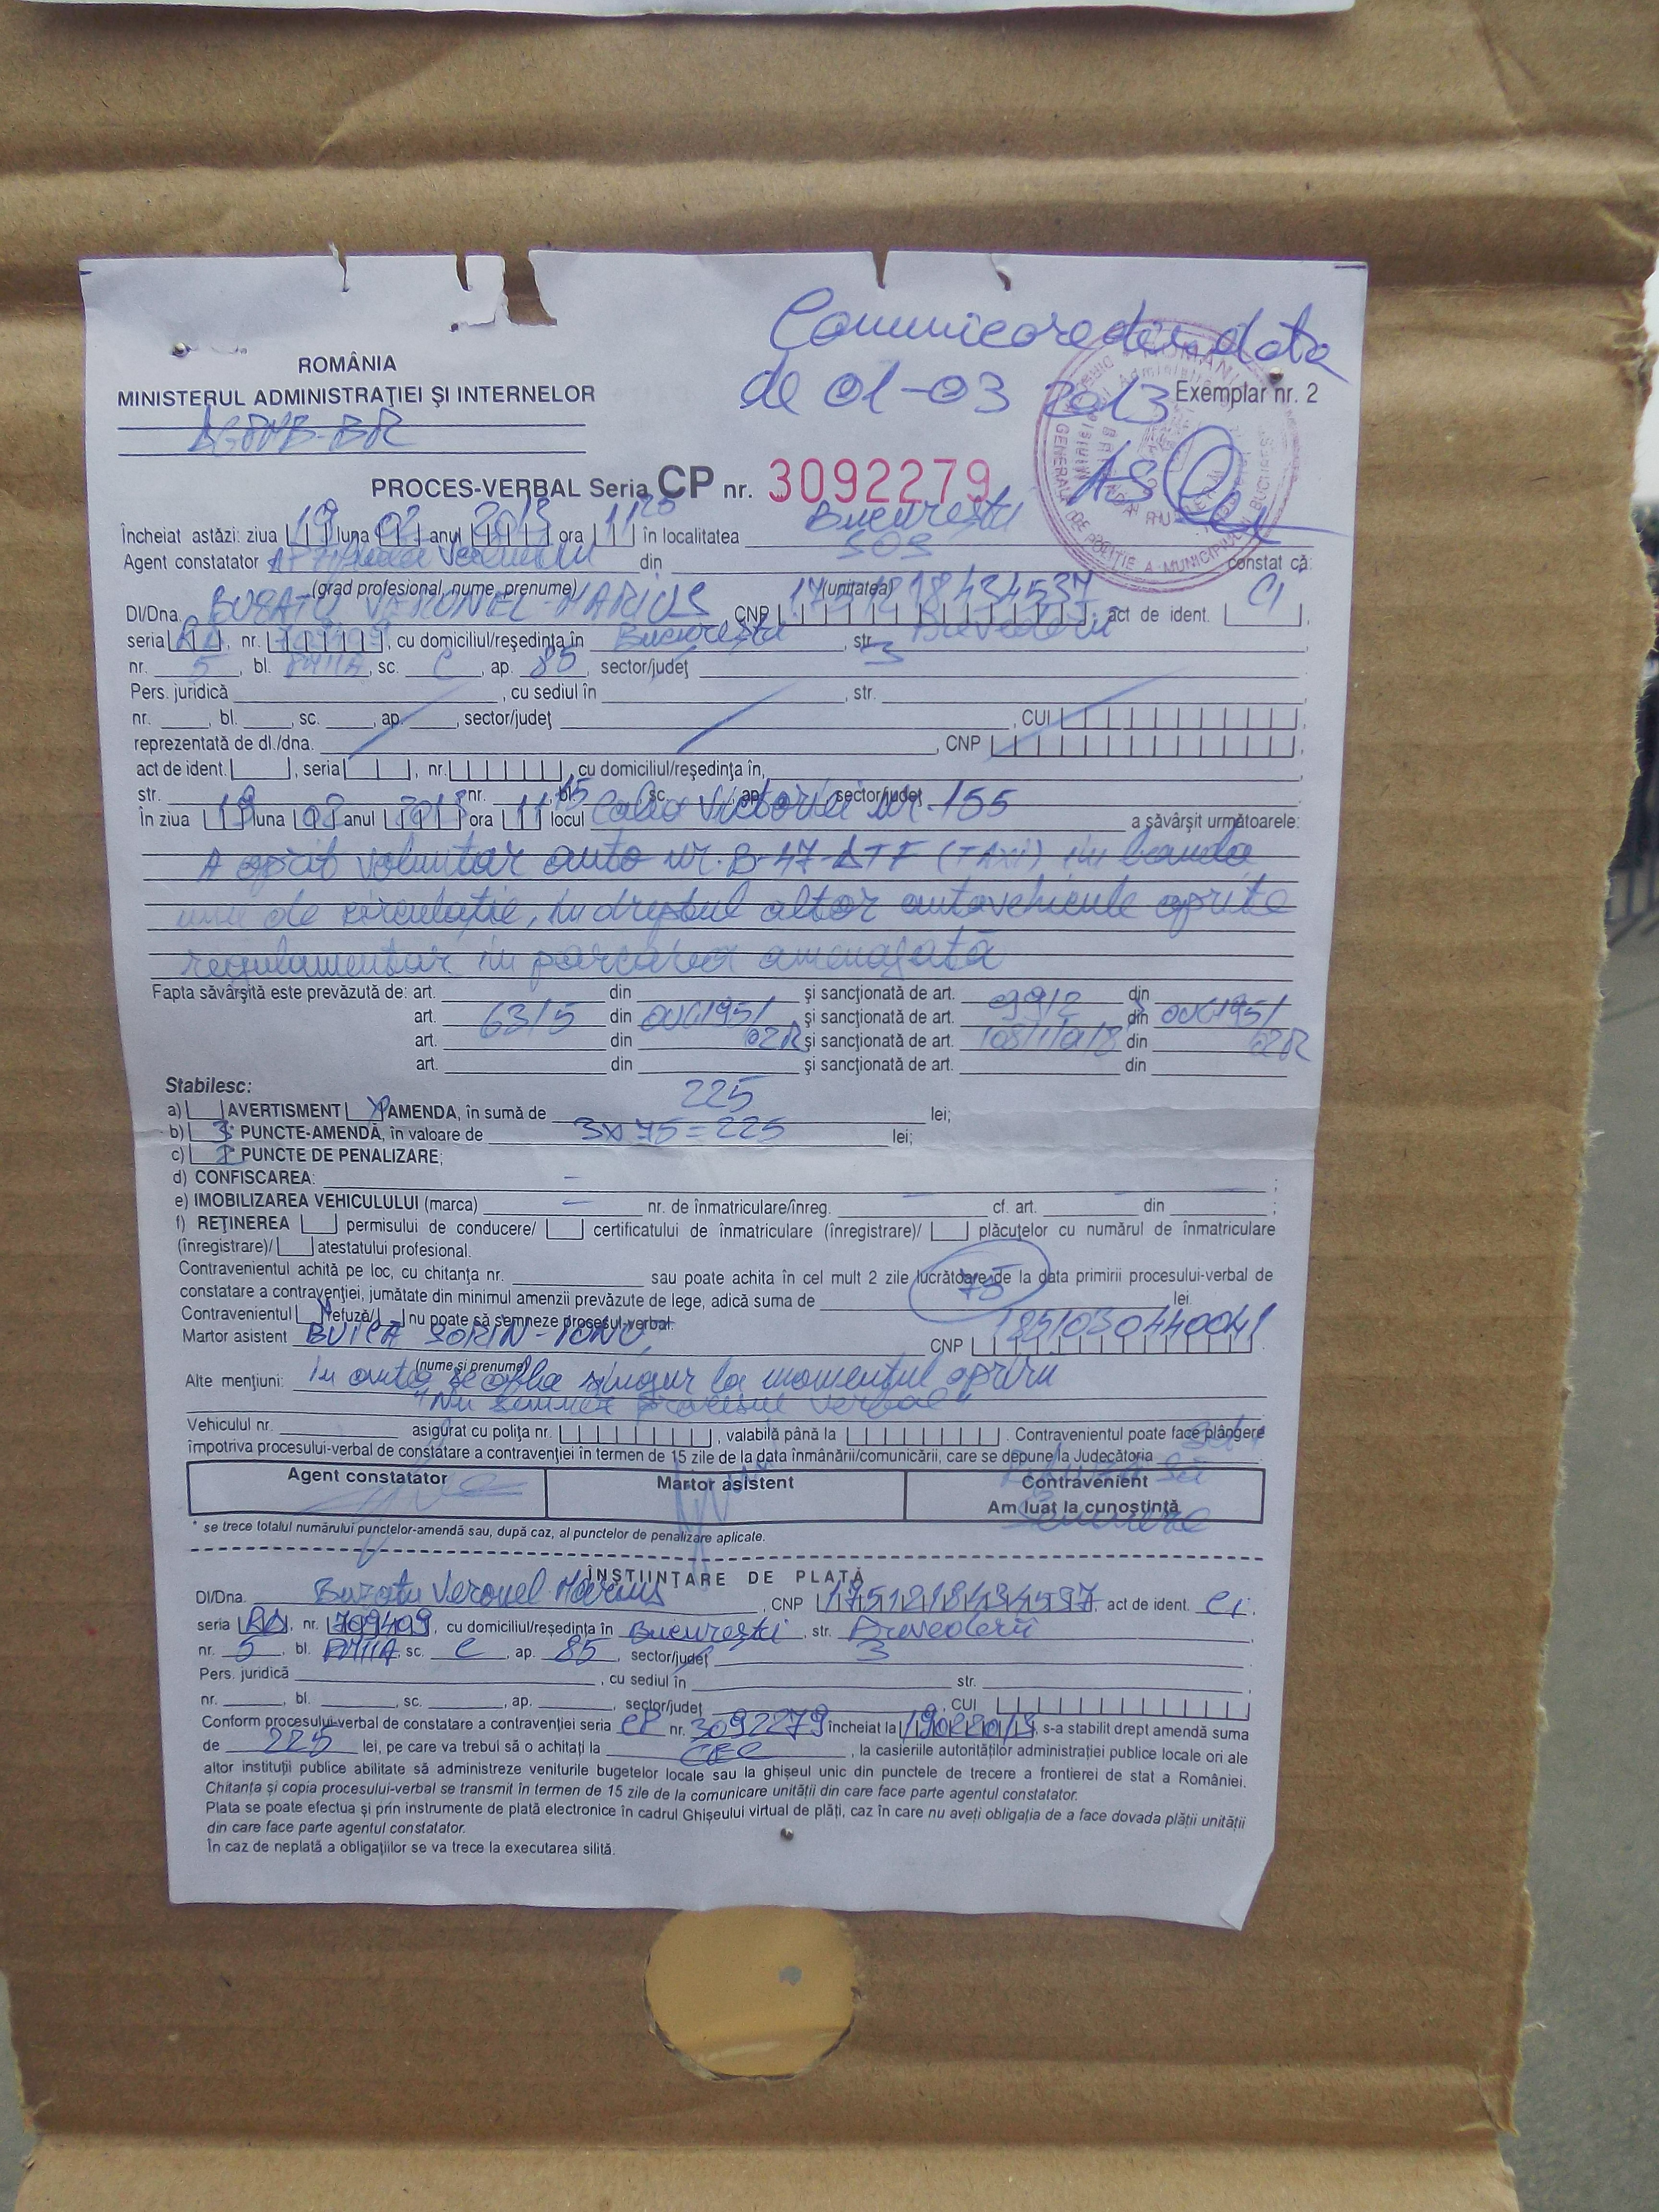 Comunicare din data
de 01-03 2013
ROMÂNIA
MINISTERUL ADMINISTRAŢIEI ŞI INTERNELOR
Exemplar nr. 2
DGPMB-BR
PROCES-VERBAL Seria CP nr. 3092279
Încheiat astăzi: ziua 19 luna 02 anul 2013 ora 11 20 în localitatea Bucureşti
Agent constatator din constat că:
(grad profesional, nume, prenume) (unitatea)
Dl/Dna. BUZATU VERONEL-MARIUS CNP 1751218434537, act de ident. CI,
seria RD, nr. 709409, cu domiciliul/reşedinţa în Bucureşti, str.
nr. 5, bl. PM11A, sc. C, ap. 85, sector/judeţ 3
Pers. juridică , cu sediul în , str.
nr. , bl. , sc. , ap. , sector/judeţ , CUI
reprezentată de dl./dna. , CNP
act de ident. , seria , nr. , cu domiciliul/reşedinţa în,
str. nr. , bl. sc. ap. sector/judeţ
În ziua 19 luna 02 anul 2013 ora 11 15 locul Calea Victoriei nr. 155 a săvârşit următoarele:
A oprit voluntar auto nr. B-47-DTF (TAXI) în banda
unu de circulaţie, în dreptul altor autovehicule oprite
regulamentar în parcarea amenajată
Fapta săvârşită este prevăzută de: art. din şi sancţionată de art. din
art. 63/5 din OUG195/ şi sancţionată de art. 99/2 din OUG195/
art. din 02R şi sancţionată de art. 108/1/a/8 din 02R
art. din şi sancţionată de art. din
Stabilesc:
a) AVERTISMENT X AMENDA, în sumă de 225 lei;
b) 3* PUNCTE-AMENDĂ, în valoare de 3x75=225 lei;
c) 2* PUNCTE DE PENALIZARE;
d) CONFISCAREA: - ;
e) IMOBILIZAREA VEHICULULUI (marca) - nr. de înmatriculare/înreg. - cf. art. - din - ;
f) REŢINEREA permisului de conducere/ certificatului de înmatriculare (înregistrare)/ plăcuţelor cu numărul de înmatriculare
(înregistrare)/ atestatului profesional.
Contravenientul achită pe loc, cu chitanţa nr. sau poate achita în cel mult 2 zile lucrătoare de la data primirii procesului-verbal de
constatare a contravenţiei, jumătate din minimul amenzii prevăzute de lege, adică suma de 75 lei.
Contravenientul X refuză/ nu poate să semneze procesul-verbal.
Martor asistent BUICĂ SORIN-IONUŢ CNP 1851030440041
(nume şi prenume)
Alte menţiuni: În auto se afla singur la momentul opririi
"Nu semnez procesul verbal"
Vehiculul nr. asigurat cu poliţa nr. , valabilă până la . Contravenientul poate face plângere
împotriva procesului-verbal de constatare a contravenţiei în termen de 15 zile de la data înmânării/comunicării, care se depune la Judecătoria
Agent constatator
Martor asistent
Contravenient
Am luat la cunoştinţă
Refuză să
semneze
* se trece totalul numărului punctelor-amendă sau, după caz, al punctelor de penalizare aplicate.
ÎNŞTIINŢARE DE PLATĂ
Dl/Dna. Buzatu Veronel Marius, CNP 1751218434537, act de ident. CI,
seria RD, nr. 709409, cu domiciliul/reşedinţa în Bucureşti, str.
nr. 5, bl. PM11A, sc. C, ap. 85, sector/judeţ 3
Pers. juridică , cu sediul în str.
nr. , bl. , sc. , ap. , sector/judeţ , CUI
Conform procesului-verbal de constatare a contravenţiei seria CP nr. 3092279 încheiat la 19022013, s-a stabilit drept amendă suma
de 225 lei, pe care va trebui să o achitaţi la CEC, la casieriile autorităţilor administraţiei publice locale ori ale
altor instituţii publice abilitate să administreze veniturile bugetelor locale sau la ghişeul unic din punctele de trecere a frontierei de stat a României.
Chitanţa şi copia procesului-verbal se transmit în termen de 15 zile de la comunicare unităţii din care face parte agentul constatator.
Plata se poate efectua şi prin instrumente de plată electronice în cadrul Ghişeului virtual de plăţi, caz în care nu aveţi obligaţia de a face dovada plăţii unităţii
din care face parte agentul constatator.
În caz de neplată a obligaţiilor se va trece la executarea silită.